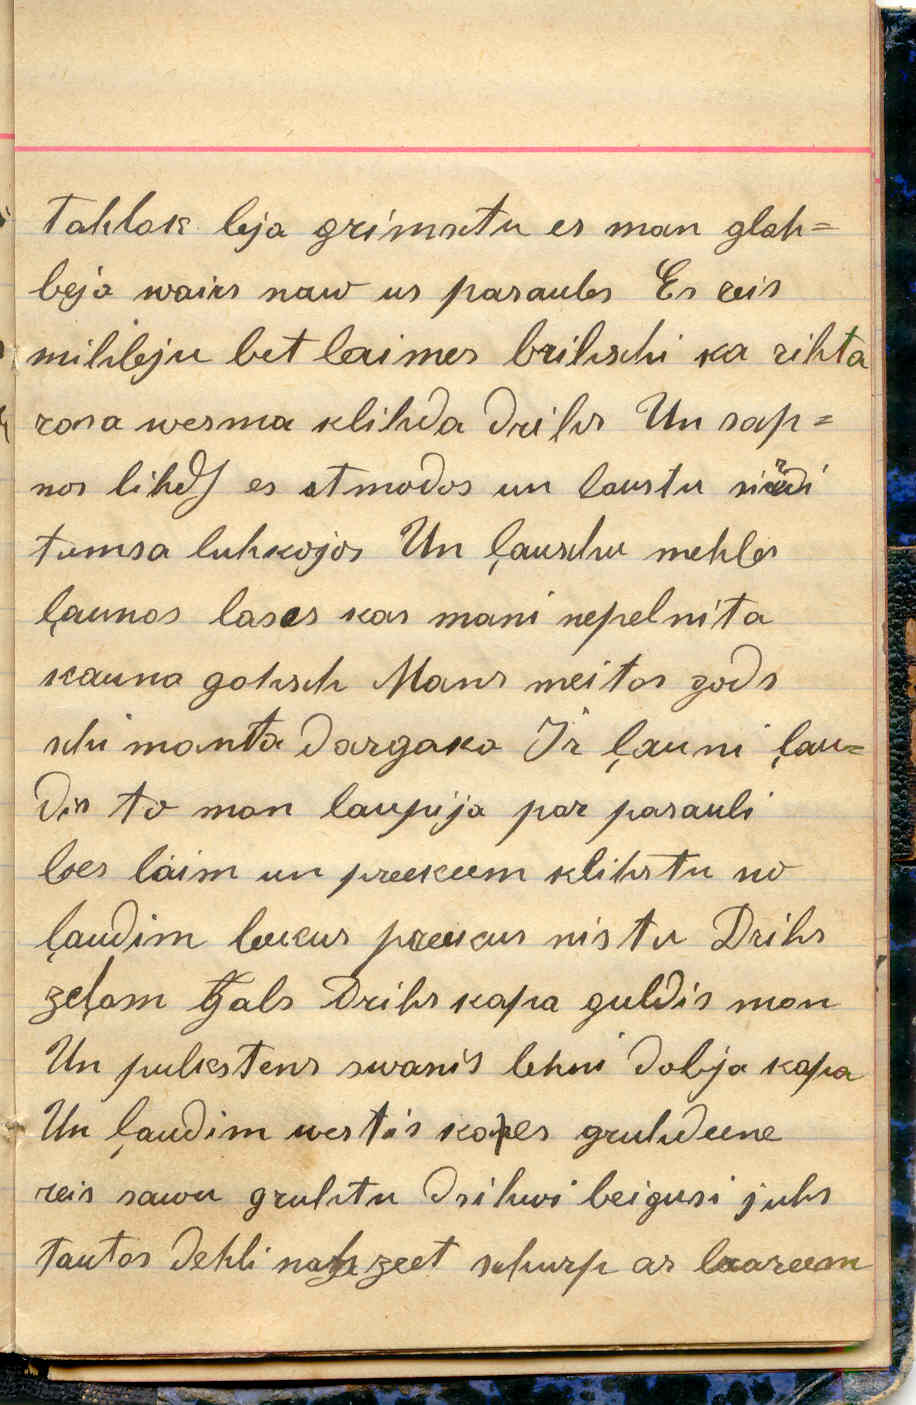 tahlak leja grimstu es man glah=
beja wairs naw us pasaules Es reis
mihleju bet laimes brihschi ka rihta
rosa wesma klihda drihs Un sap=
nos lihds es atmodos un laustu sirdi
tumsa luhkojos Un ļauschu mehles
ļaunos lases kas mani nepelnita
kauna gahsch Mans meitas gods
schi manta dargaka Ir ļauni ļau=
dis to man laupija par pasauli
loes laim un preekeem klihstu no
ļaudim leekus preekus nistu Drihs
zeļam gals Drihs kapa guldis man
Un pulkstens swanis lehni dobja kapa
Un ļaudim westis kapes gruhdeene
reis sawu gruhtu dsihwi beigusi juhs
tautas dehli nahzeet schurp ar